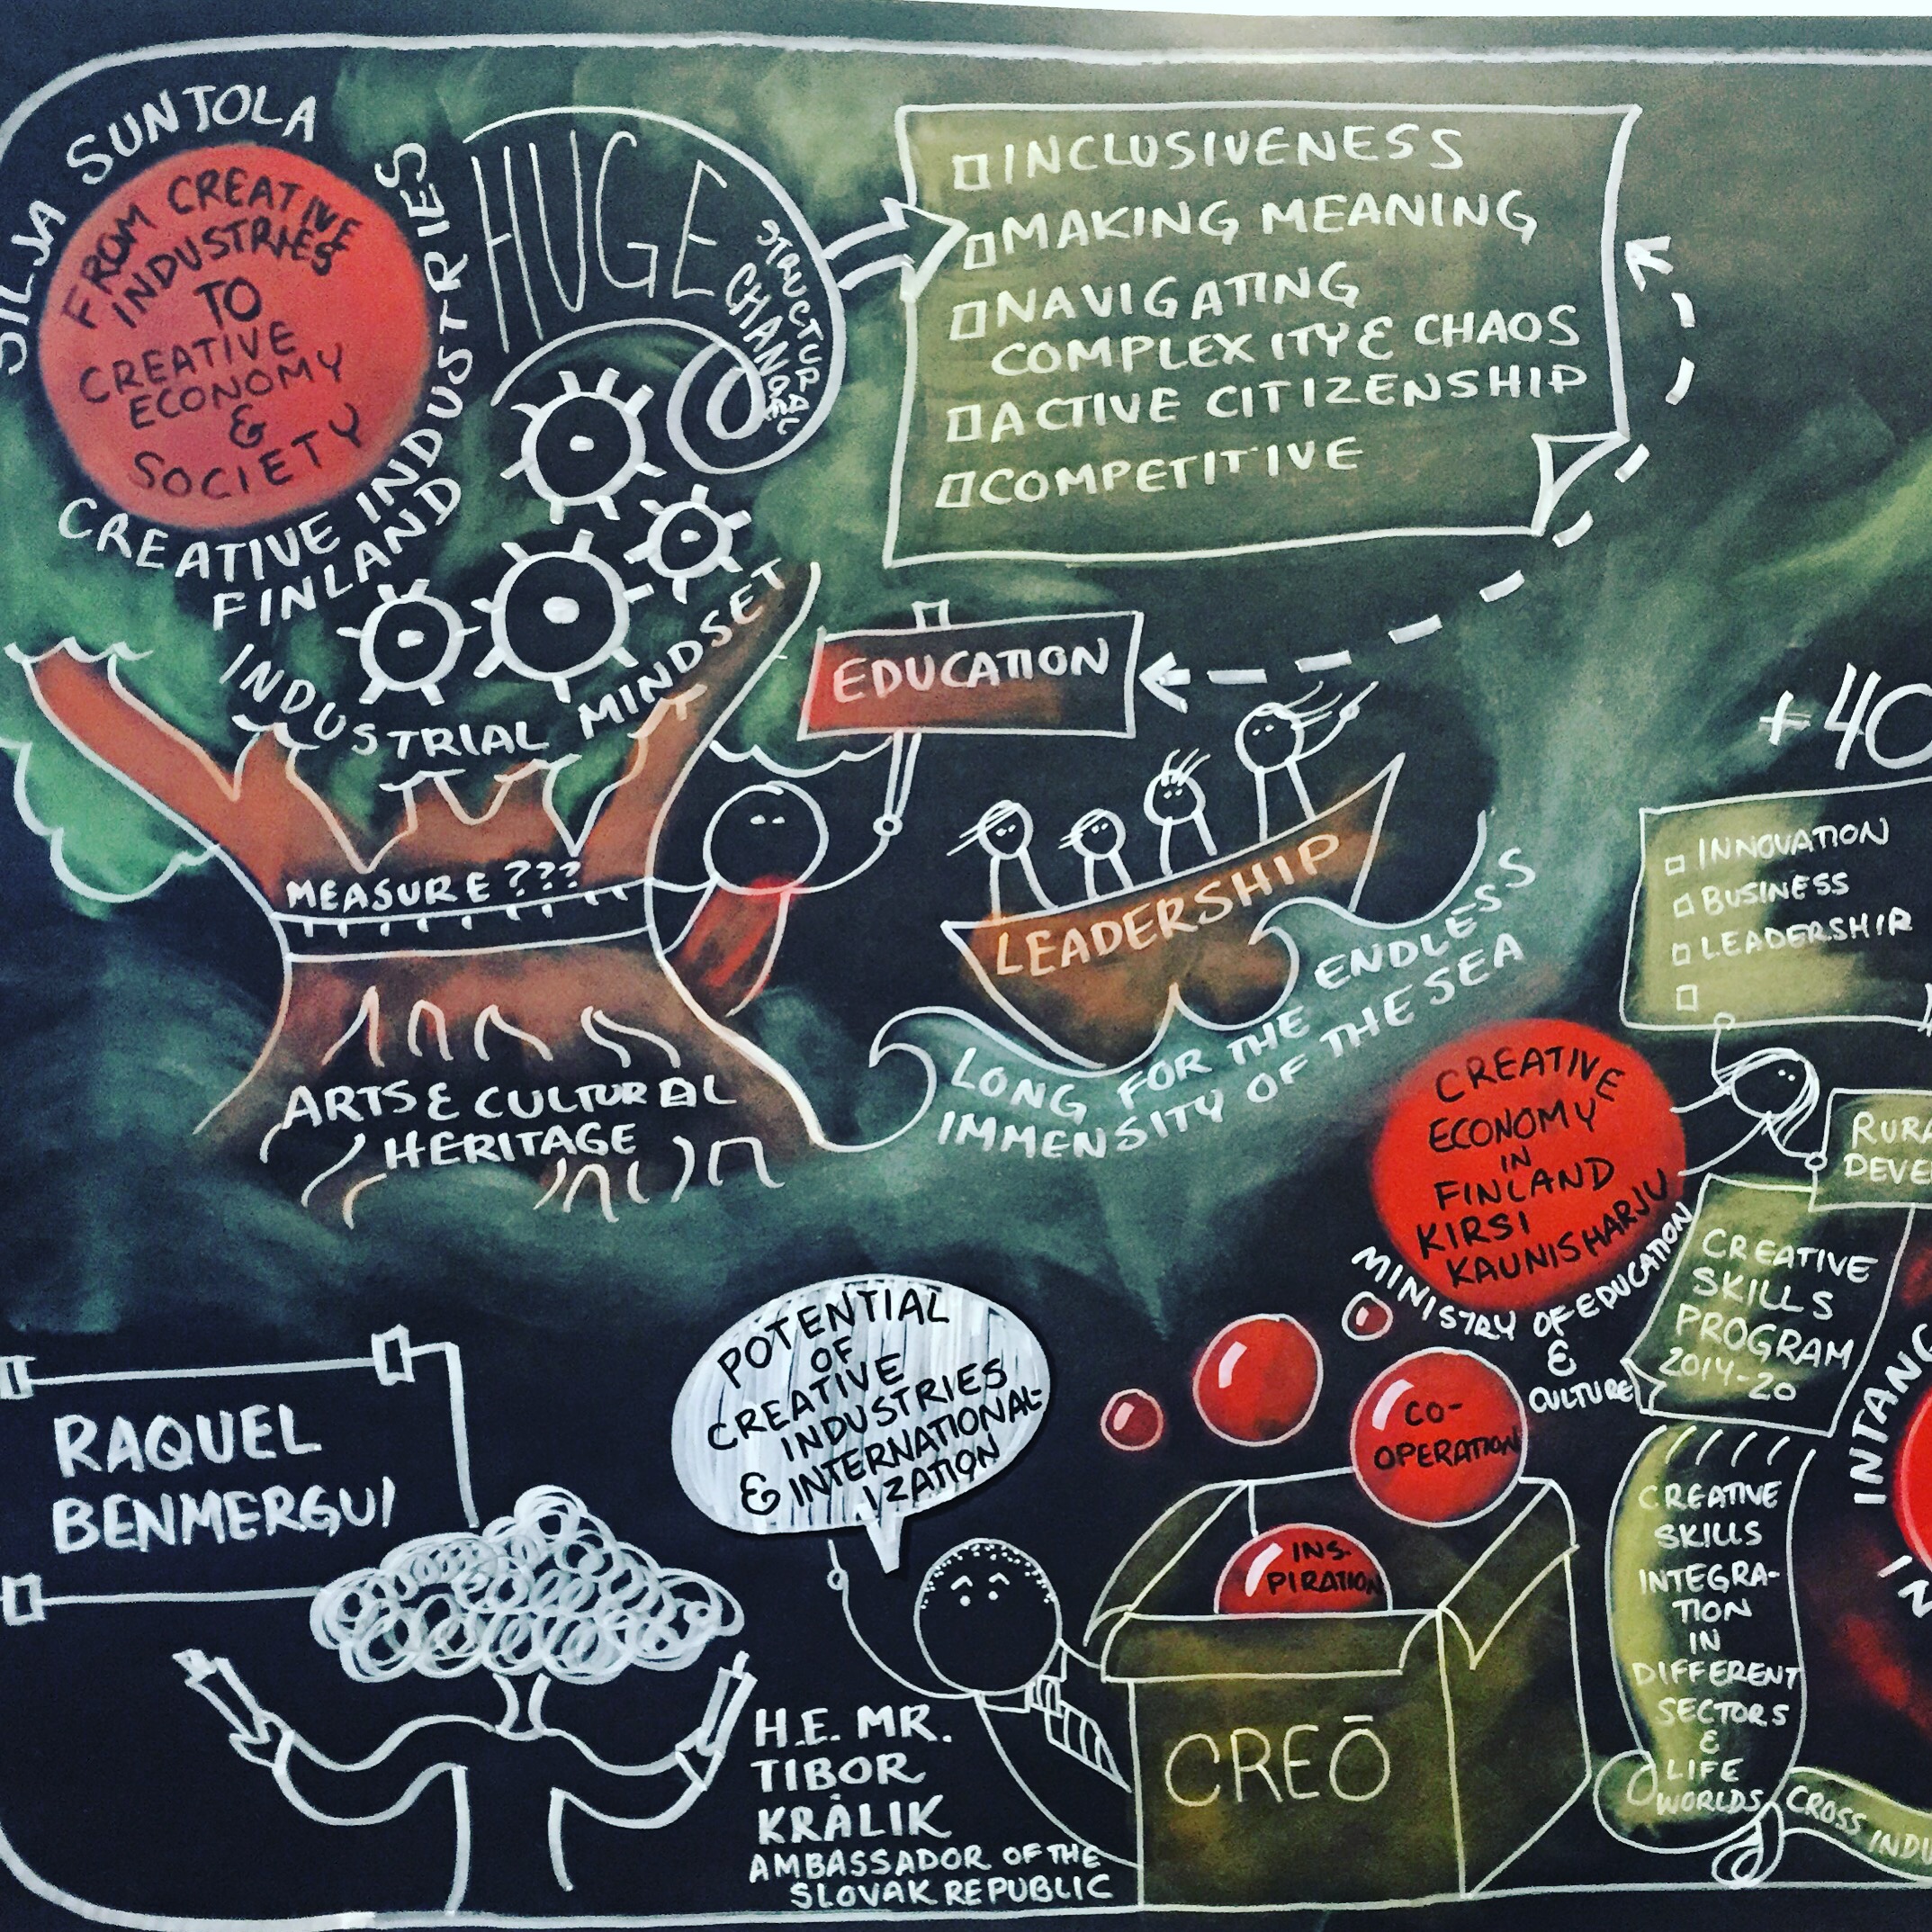 SILJA SUNTOLA
FROM CREATIVE
INDUSTRIES
TO
CREATIVE
ECONOMY
&
SOCIETY
CREATIVE INDUSTRIES
FINLAND
HUGE
STRUCTURAL
CHANGE
INCLUSIVENESS
MAKING MEANING
NAVIGATING
COMPLEXITY & CHAOS
ACTIVE CITIZENSHIP
COMPETITIVE
INDUSTRIAL MINDSET
EDUCATION
MEASURE???
ARTS & CULTURAL
HERITAGE
LEADERSHIP
LONG FOR THE ENDLESS
IMMENSITY OF THE SEA
+40
INNOVATION
BUSINESS
LEADERSHIP
CREATIVE
ECONOMY
IN
FINLAND
KIRSI
KAUNISHARJU
MINISTRY OF EDUCATION
&
CULTURE
RURA
DEVE
CREATIVE
SKILLS
PROGRAM
2014-20
CREATIVE
SKILLS
INTEGRA-
TION
IN
DIFFERENT
SECTORS
&
LIFE
WORLDS
CROSS INDU
INTANG
IN
RAQUEL
BENMERGUI
POTENTIAL
OF
CREATIVE
INDUSTRIES
& INTERNATIONAL-
IZATION
H.E. MR.
TIBOR
KRÁLIK
AMBASSADOR OF THE
SLOVAK REPUBLIC
CO-
OPERATION
INS-
PIRATION
CREŌ